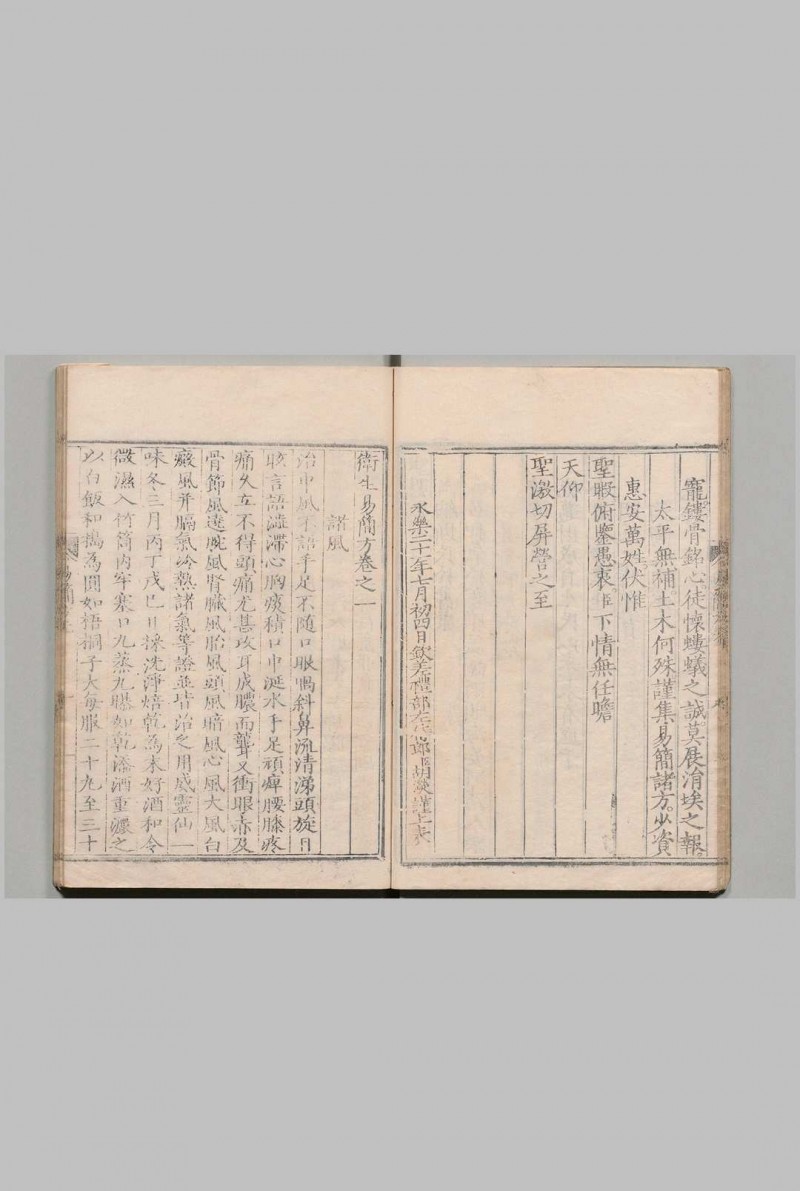 寵鏤骨銘心徒懷螻蟻之誠莫展涓埃之報
太平無補土木何殊謹集易簡諸方少資
惠安萬姓伏惟
聖暇俯鑒愚衷臣下情無任瞻
天仰
聖激切屏營之至
永樂二十一年七月初四日欽差禮部左侍郎臣胡濙謹上表
衛生易簡方卷之一
諸風
治中風不語手足不隨口眼喎斜鼻流清涕頭旋目
眩言語澁滯心胸痰積口中涎水手足頑痺腰膝疼
痛久立不得頭痛尤甚攻耳成膿而聾又衝眼赤及
骨節風遶腕風腎臟風胎風頭風暗風心風大風白
癜風并膈氣冷熱諸氣等證並皆治之用威靈仙一
味冬三月丙丁戊巳日採洗淨焙乾為末好酒和令
微濕入竹筒內牢塞口九蒸九曝如乾添酒重灑之
以白飯和搗為圓如梧桐子大每服二十九至三十